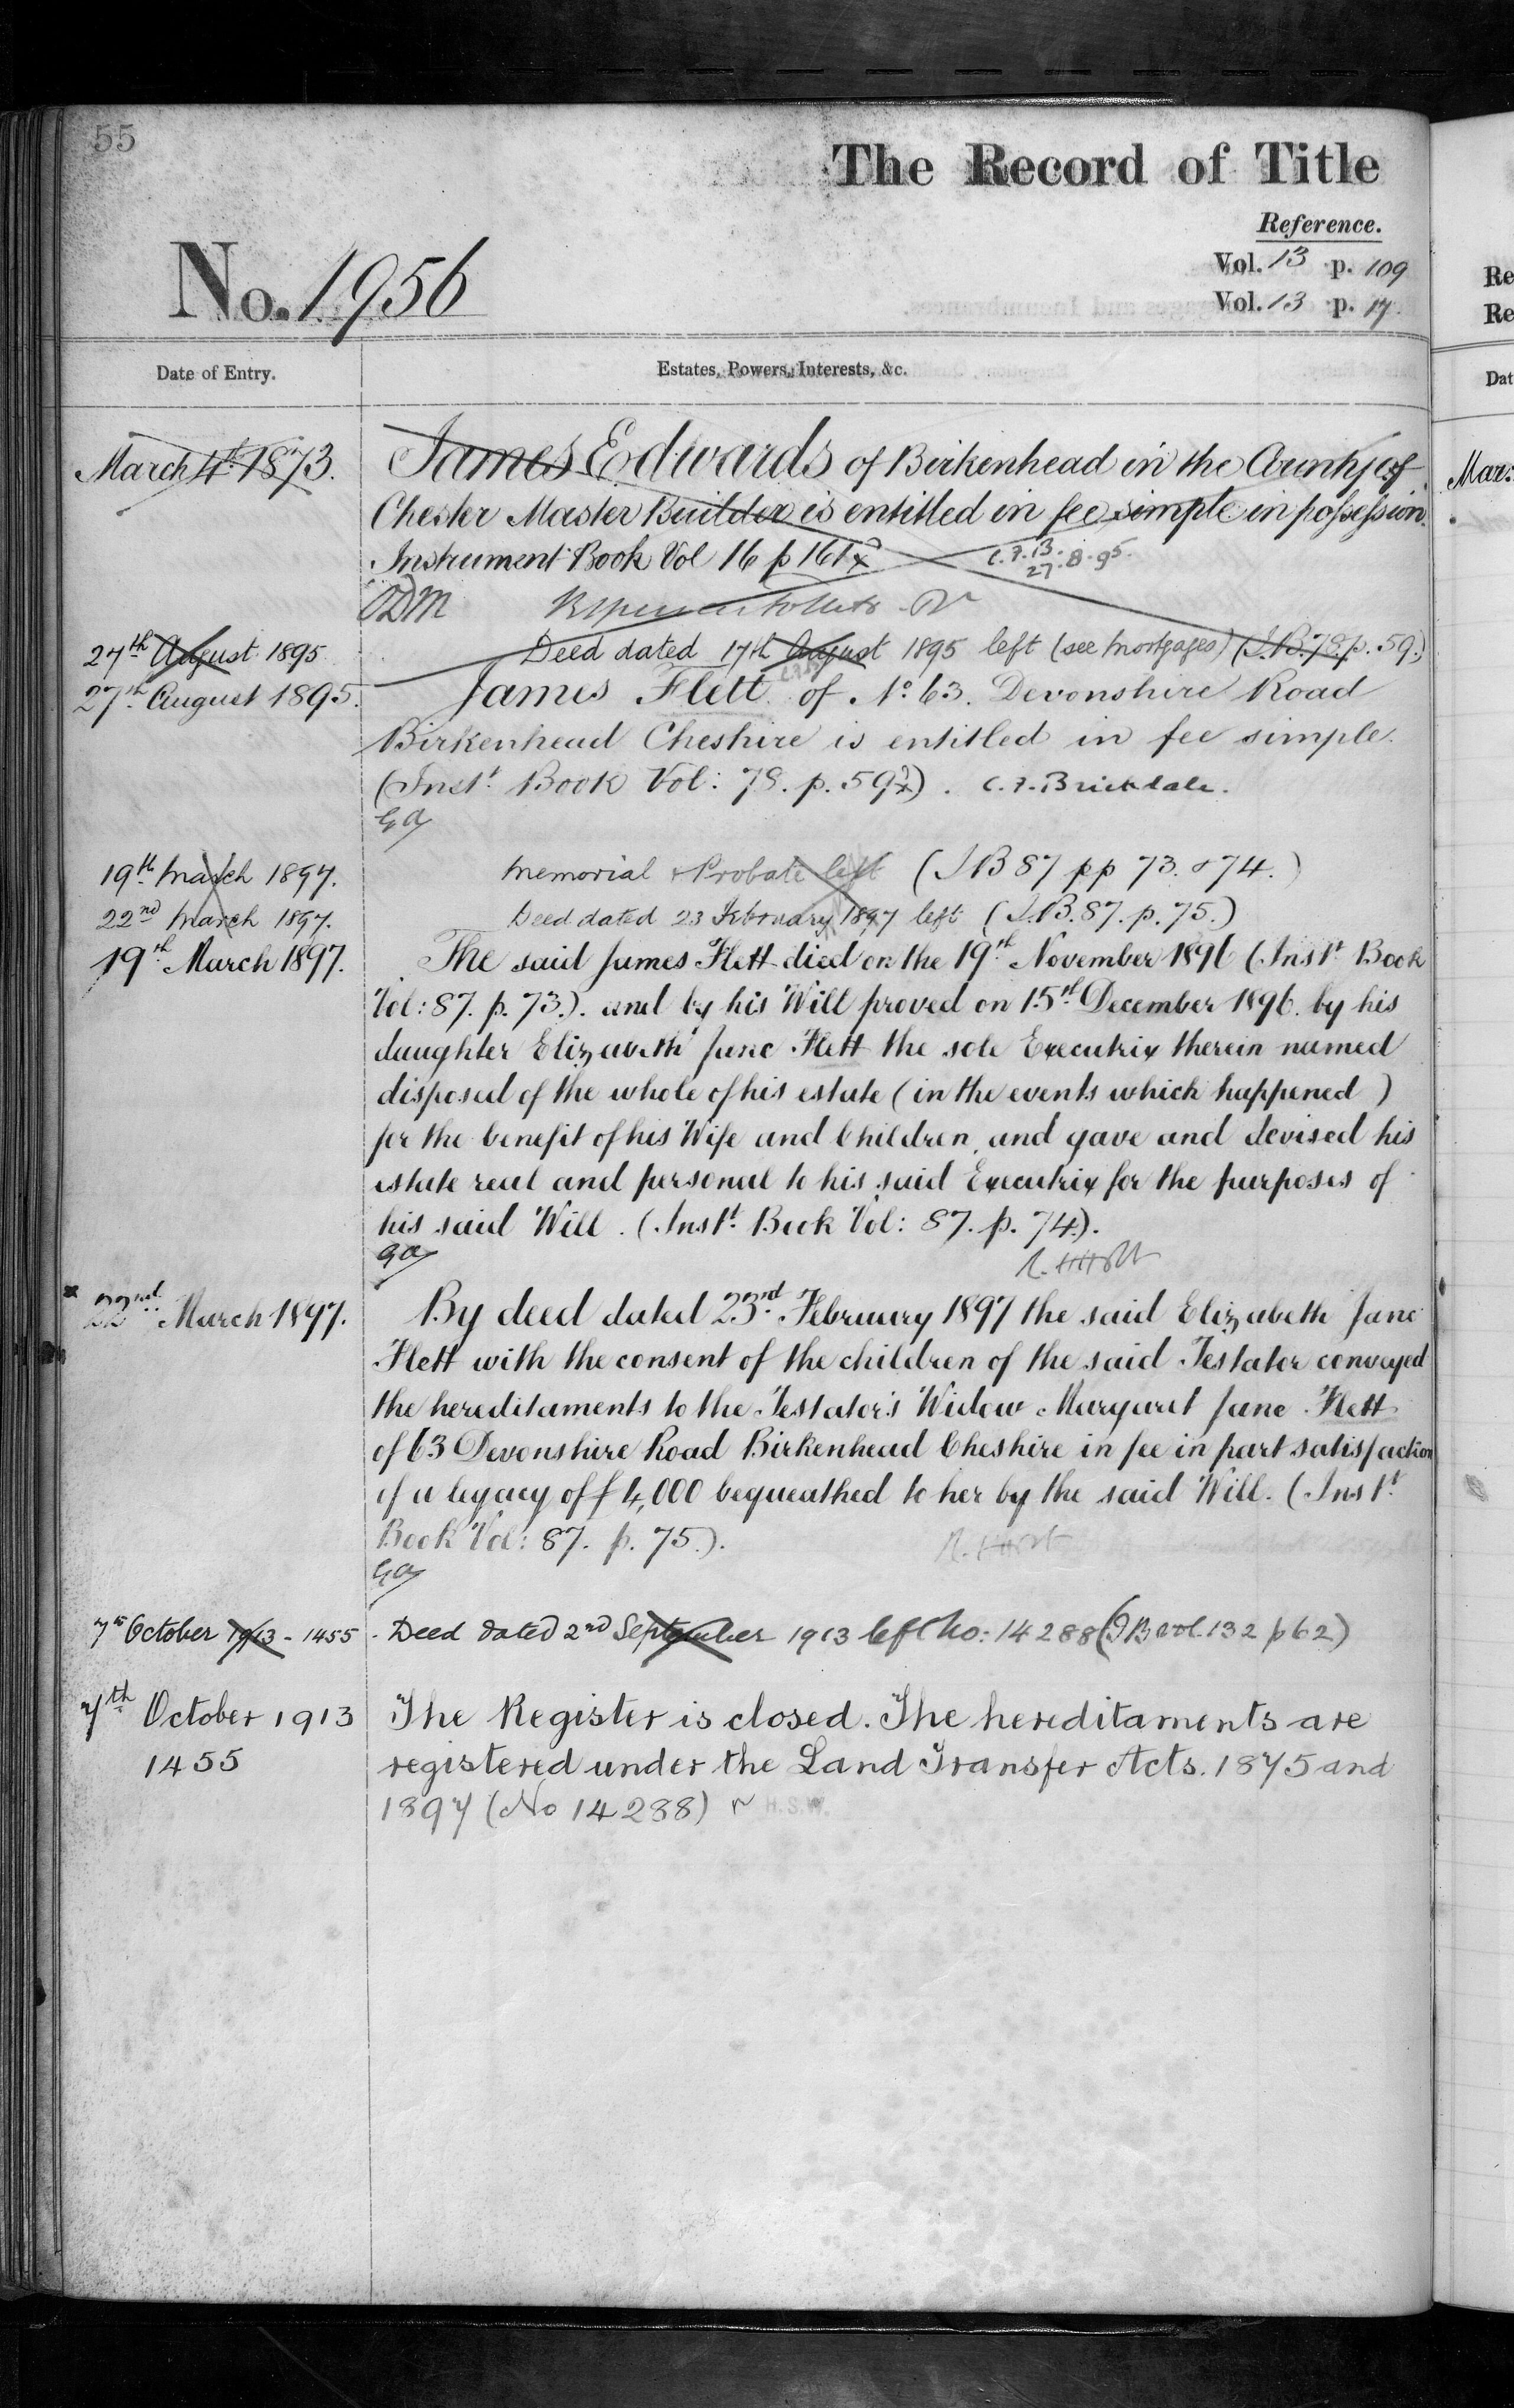 55
The Record of Title
Reference.
No. 1956
Vol. 13 p. 109
Vol. 13 p. 17.
Date of Entry.
Estates, Powers, Interests, &c.
March 4th 1873.
James Edwards of Birkenhead in the County of
Chester Master Builder is entitled in fee simple in possession.
Instrument Book Vol 16 p 161
C.F.B.
27.8.95.
27th August 1895
Deed dated 17th August 1895 left (see Mortgages) (I.B. 78 p. 59.)
27th August 1895.
James Flett of No. 63. Devonshire Road
Birkenhead Cheshire is entitled in fee simple.
(Inst. Book Vol: 78. p. 59). C.F. Brickdale.
Ga
19th March 1897.
Memorial & Probate left (I B 87 pp 73. & 74.)
22nd March 1897.
Deed dated 23 February 1897 left (I.B. 87. p. 75.)
19th March 1897.
The said James Flett died on the 19th November 1896 (Inst. Book
Vol: 87. p. 73.). and by his Will proved on 15th December 1896. by his
daughter Elizabeth Jane Flett the sole Executrix therein named
disposed of the whole of his estate (in the events which happened)
for the benefit of his Wife and Children, and gave and devised his
estate real and personal to his said Executrix for the purposes of
his said Will. (Inst. Book Vol: 87. p. 74.).
Ga
22nd March 1897.
By deed dated 23rd February 1897 the said Elizabeth Jane
Flett with the consent of the children of the said Testator conveyed
the hereditaments to the Testator's Widow Margaret Jane Flett
of 63 Devonshire Road Birkenhead Cheshire in fee in part satisfaction
of a legacy of £4,000 bequeathed to her by the said Will. (Inst.
Book Vol: 87. p. 75.).
Ga
7th October 1913 - 1455
Deed dated 2nd September 1913 left No: 14288 (I B vol. 132 p 62)
7th October 1913
1455
The Register is closed. The hereditaments are
registered under the Land Transfer Acts. 1875 and
1897 (No 14288) H.S.W.
Re
Re
Dat
Mar